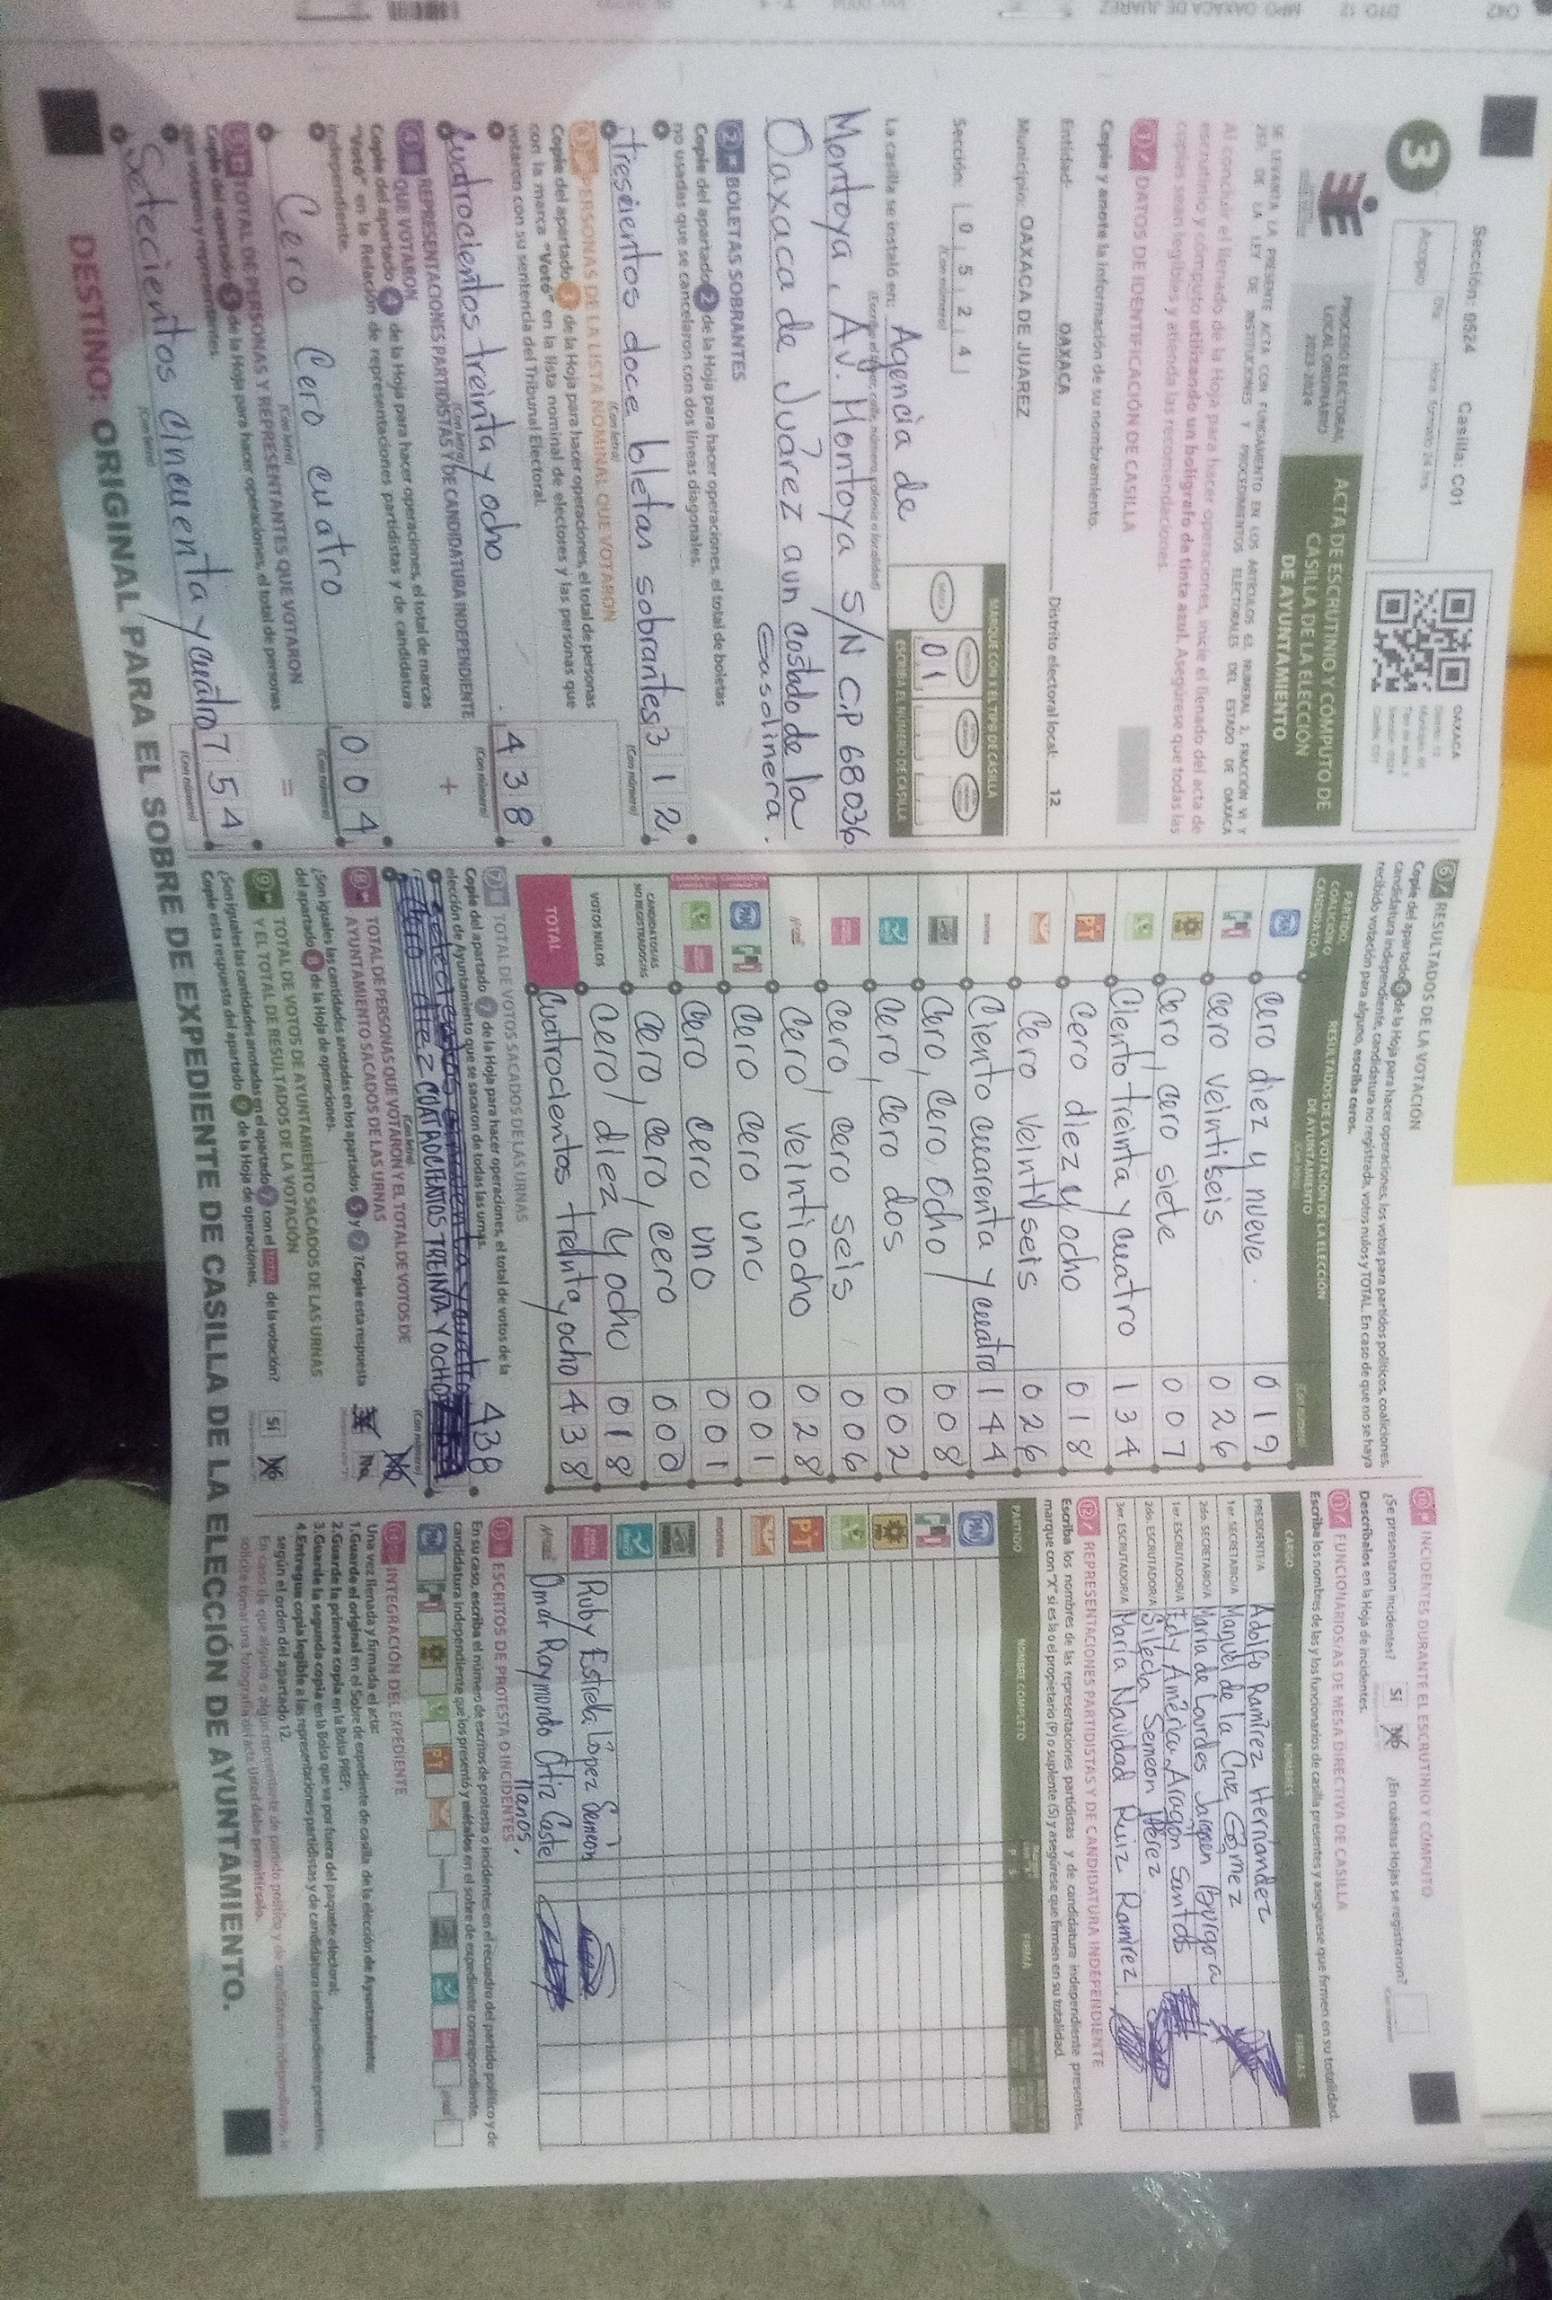 Sección: 0524 Casilla: C01
3
Acopio
OAXACA
PROCESO ELECTORAL
LOCAL ORDINARIO
2023-2024
ACTA DE ESCRUTINIO Y CÓMPUTO DE
CASILLA DE LA ELECCIÓN
DE AYUNTAMIENTO
Al concluir el llenado de la Hoja para hacer operaciones, inicie el llenado del acta de
escrutinio y cómputo utilizando un bolígrafo de tinta azul. Asegúrese que todas las
copias sean legibles y atienda las recomendaciones.
1 DATOS DE IDENTIFICACIÓN DE CASILLA
Copie y anote la información de su nombramiento.
Entidad: OAXACA Distrito electoral local: 12
Municipio: OAXACA DE JUAREZ
Sección: 0 5 2 4
(Con número)
MARQUE CON X EL TIPO DE CASILLA
ESCRIBA EL NÚMERO DE CASILLA
01
La casilla se instaló en: Agencia de
Montoya, Av. Montoya S/N C.P 68036
Oaxaca de Juárez a un costado de la
Gasolinera.
2 BOLETAS SOBRANTES
Copie del apartado 2 de la Hoja para hacer operaciones, el total de boletas
no usadas que se cancelaron con dos líneas diagonales.
trescientos doce bletas sobrantes 3 1 2
(Con letra) (Con número)
3 PERSONAS DE LA LISTA NOMINAL QUE VOTARON
Copie del apartado 3 de la Hoja para hacer operaciones, el total de personas
con la marca "Votó" en la lista nominal de electores y las personas que
votaron con su sentencia del Tribunal Electoral.
Cuatrocientos treinta y ocho 4 3 8
(Con letra) (Con número)
4 REPRESENTACIONES PARTIDISTAS Y DE CANDIDATURA INDEPENDIENTE
QUE VOTARON
Copie del apartado 4 de la Hoja para hacer operaciones, el total de marcas
"Votó" en la Relación de representaciones partidistas y de candidatura
independiente.
Cero Cero cuatro 0 0 4
(Con letra) (Con número)
5 TOTAL DE PERSONAS Y REPRESENTANTES QUE VOTARON
Copie del apartado 5 de la Hoja para hacer operaciones, el total de personas
que votaron y representantes.
Setecientos cincuenta y cuatro 7 5 4
(Con letra) (Con número)
6 RESULTADOS DE LA VOTACIÓN
Copie del apartado 6 de la Hoja para hacer operaciones, los votos para partidos políticos, coaliciones,
candidatura independiente, candidatura no registrada, votos nulos y TOTAL. En caso de que no se haya
recibido votación para alguno, escriba ceros.
PARTIDO, COALICIÓN O CANDIDATO/A
RESULTADOS DE LA VOTACIÓN DE LA ELECCIÓN
DE AYUNTAMIENTO
PAN Cero diez y nueve. 0 1 9
PRI cero veintiseis 0 2 6
Cero, cero siete 0 0 7
Ciento treinta y cuatro 1 3 4
PT Cero diez y ocho 0 1 8
Cero veinti seis 0 2 6
morena Ciento cuarenta y cuatro 1 4 4
Cero, cero, ocho 0 0 8
Cero, cero dos 0 0 2
cero, cero seis 0 0 6
Cero veintiocho 0 2 8
PAN PRI Cero cero uno 0 0 1
Cero cero uno 0 0 1
CANDIDATOS/AS
NO REGISTRADOS/AS Cero, cero, cero 0 0 0
VOTOS NULOS Cero diez y ocho 0 1 8
TOTAL Cuatrocientos treinta y ocho 4 3 8
7 TOTAL DE VOTOS SACADOS DE LAS URNAS
Copie del apartado 7 de la Hoja para hacer operaciones, el total de votos de la
elección de Ayuntamiento que se sacaron de todas las urnas.
438
CUATROCIENTOS TREINTA Y OCHO
(Con letra) (Con número)
8 TOTAL DE PERSONAS QUE VOTARON Y EL TOTAL DE VOTOS DE
AYUNTAMIENTO SACADOS DE LAS URNAS
¿Son iguales las cantidades anotadas en los apartados 5 y 7? Copie esta respuesta
del apartado 8 de la Hoja de operaciones.
Sí No
9 TOTAL DE VOTOS DE AYUNTAMIENTO SACADOS DE LAS URNAS
Y EL TOTAL DE RESULTADOS DE LA VOTACIÓN
¿Son iguales las cantidades anotadas en el apartado 7 con el TOTAL de la votación?
Copie esta respuesta del apartado 9 de la Hoja de operaciones.
Sí No
10 INCIDENTES DURANTE EL ESCRUTINIO Y CÓMPUTO
¿Se presentaron incidentes? Sí No ¿En cuántas Hojas se registraron?
Descríbalos en la Hoja de incidentes.
11 FUNCIONARIOS/AS DE MESA DIRECTIVA DE CASILLA
Escriba los nombres de las y los funcionarios de casilla presentes y asegúrese que firmen en su totalidad.
CARGO NOMBRES FIRMAS
PRESIDENTE/A Adolfo Ramírez Hernández
1er. SECRETARIO/A Manuel de la Cruz Gómez
2do. SECRETARIO/A María de Lourdes Jarquen Burgoa
1er. ESCRUTADOR/A Edy América Aragón Santos
2do. ESCRUTADOR/A Silecia Semeon Pérez
3er. ESCRUTADOR/A María Navidad Ruiz Ramírez
12 REPRESENTACIONES PARTIDISTAS Y DE CANDIDATURA INDEPENDIENTE
Escriba los nombres de las representaciones partidistas y de candidatura independiente presentes,
marque con "X" si es la o el propietario (P) o suplente (S) y asegúrese que firmen en su totalidad.
PARTIDO NOMBRE COMPLETO FIRMA
PAN
PRI
PT
morena
Ruby Estrella López Semeón
Omar Raymondo Ortiz Caste
llanos.
13 ESCRITOS DE PROTESTA O INCIDENTES
En su caso, escriba el número de escritos de protesta o incidentes en el recuadro del partido político y de
candidatura independiente que los presentó y métalos en el sobre de expediente correspondiente.
14 INTEGRACIÓN DEL EXPEDIENTE
Una vez llenada y firmada el acta:
1.Guarde el original en el Sobre de expediente de casilla de la elección de Ayuntamiento;
2.Guarde la primera copia en la Bolsa PREP;
3.Guarde la segunda copia en la Bolsa que va por fuera del paquete electoral;
4.Entregue copia legible a las representaciones partidistas y de candidatura independiente presentes,
según el orden del apartado 12.
DESTINO: ORIGINAL PARA EL SOBRE DE EXPEDIENTE DE CASILLA DE LA ELECCIÓN DE AYUNTAMIENTO.